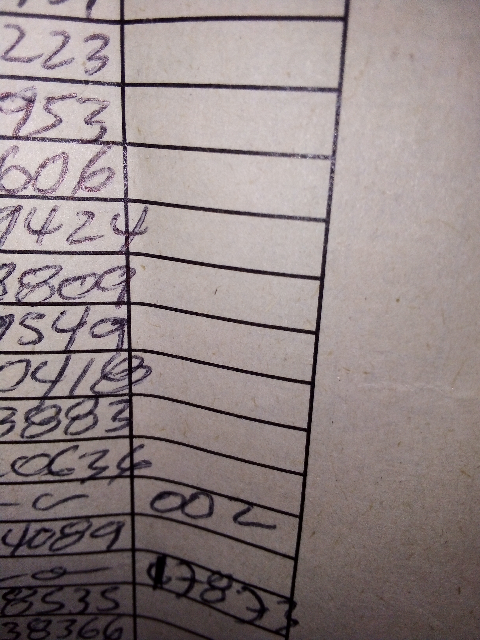 223
953
606
9424
3809
9549
0418
3883
0636
002
4089
8535
38366